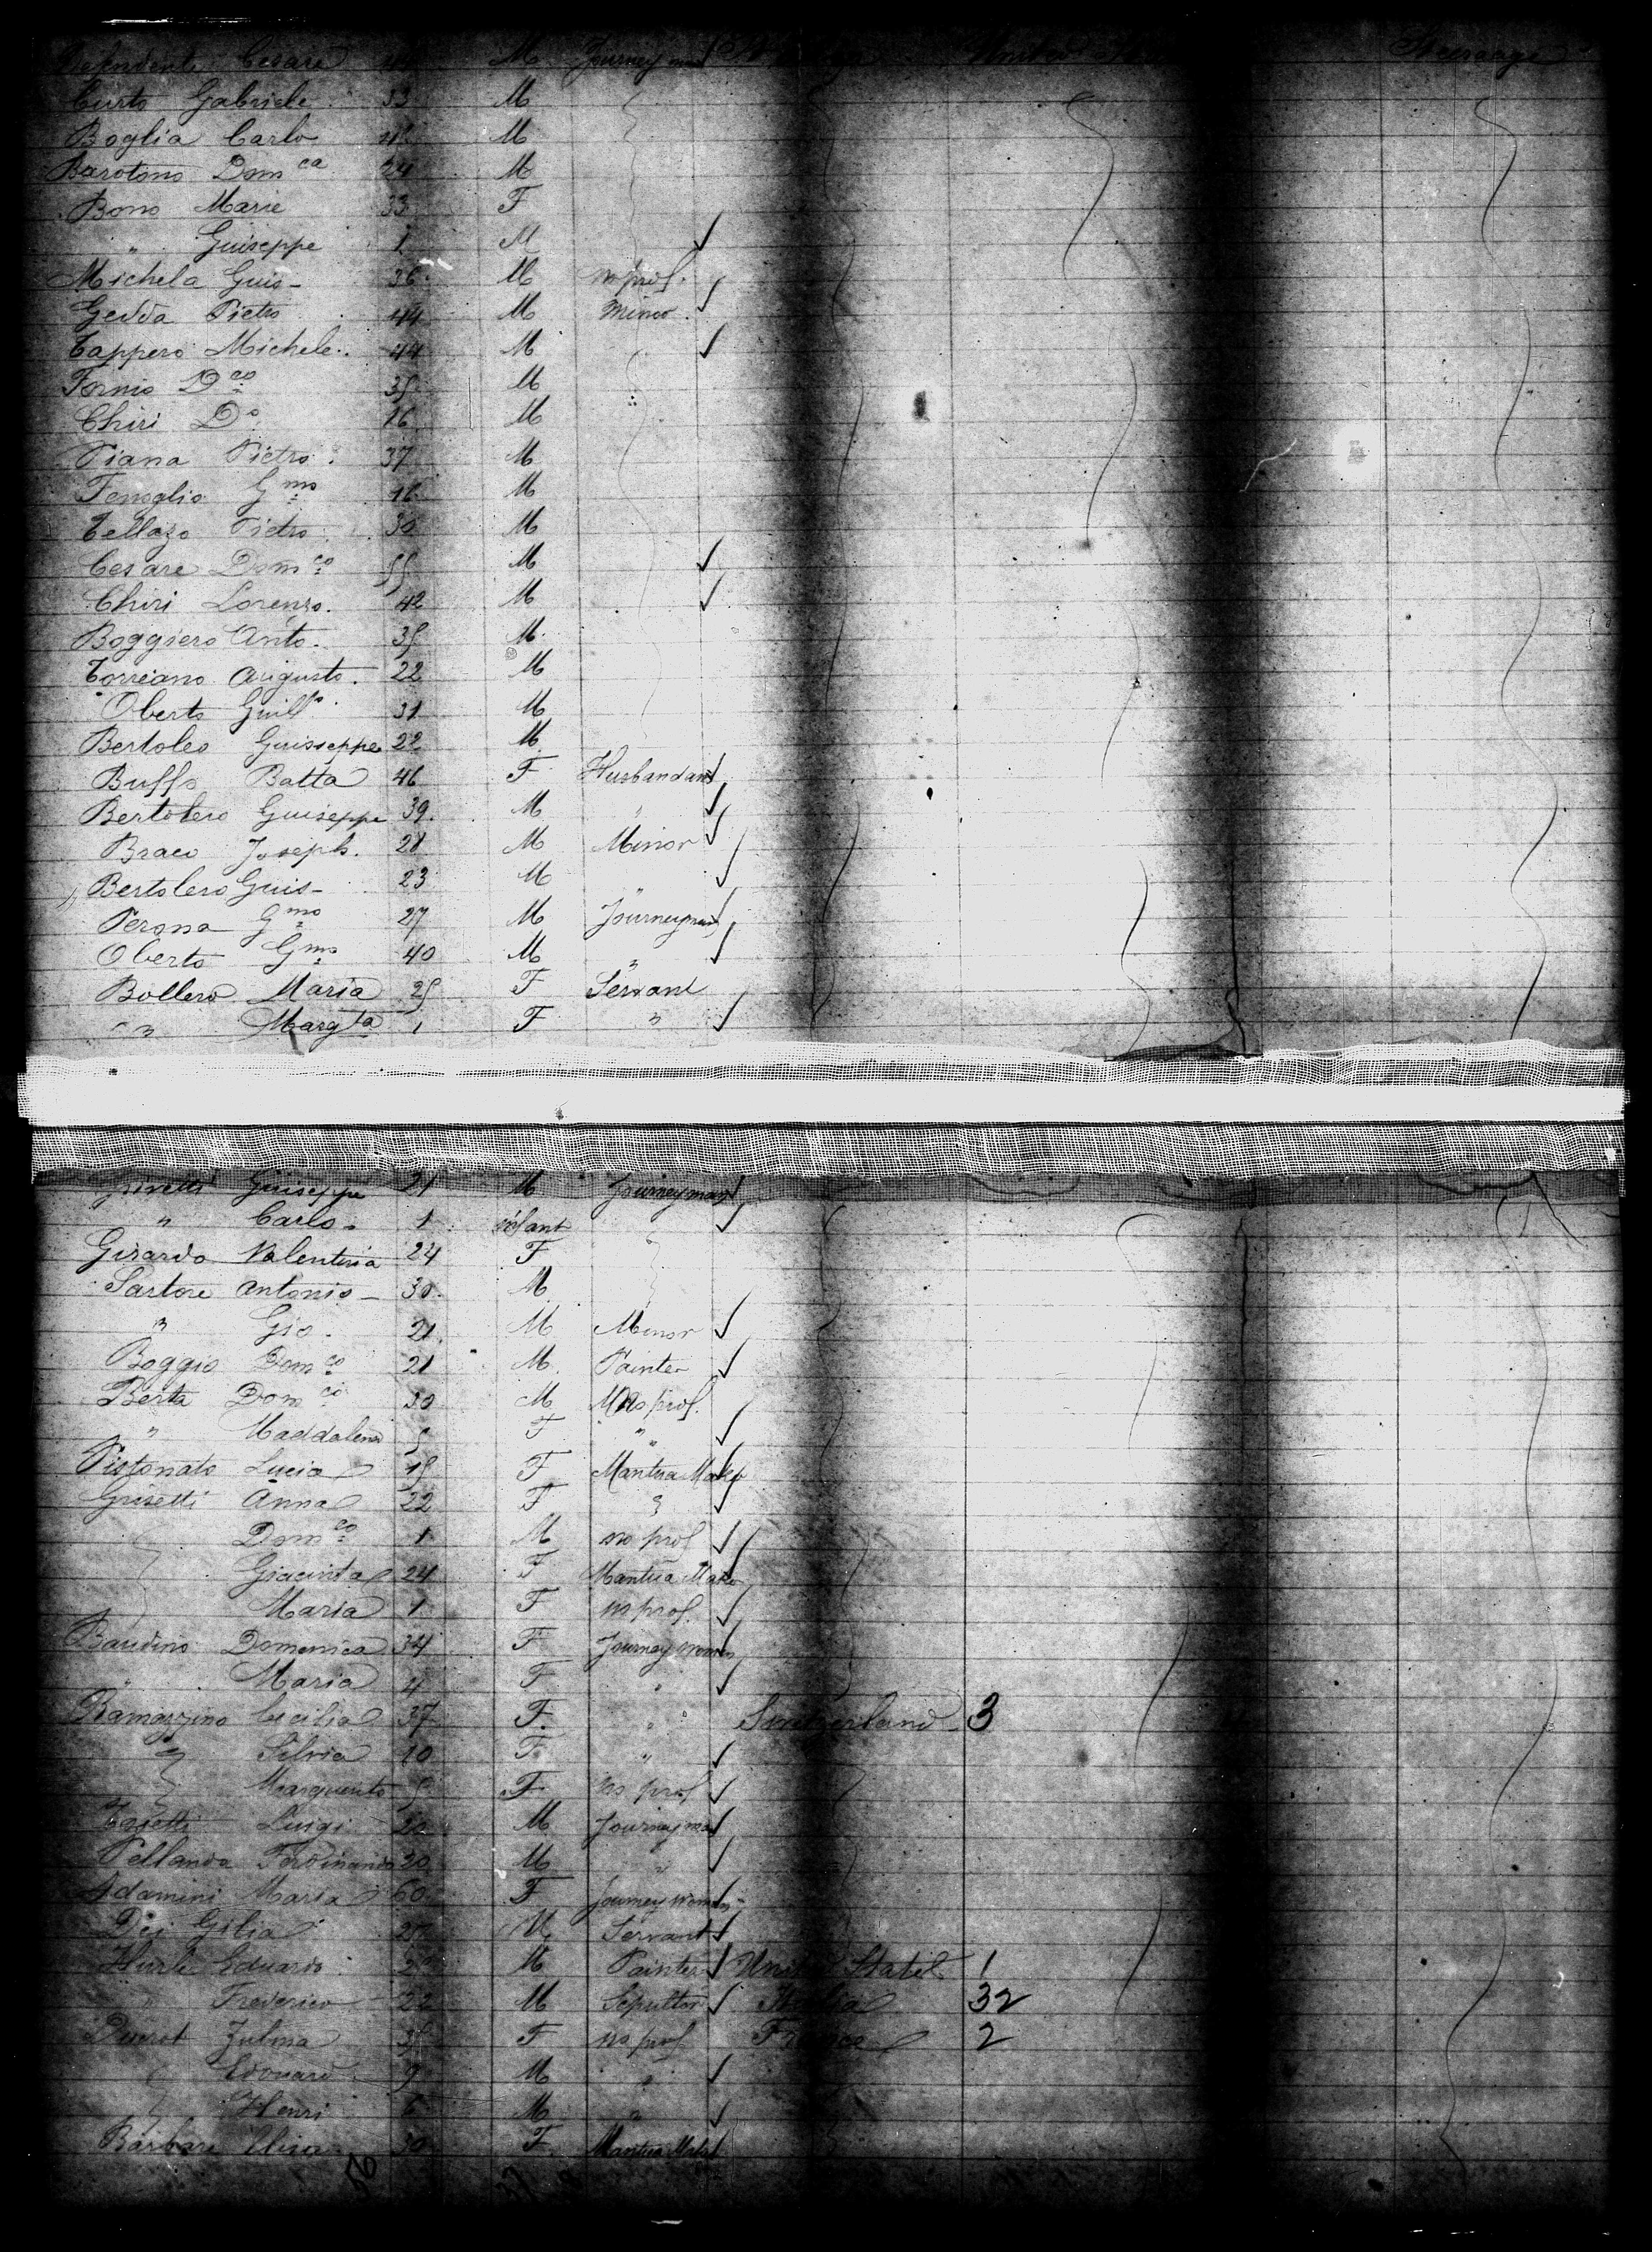 Defendente Cesare 44 M Journey man United Steerage
Curto Gabriele 33 M
Boglia Carlo 42 M
Barotono Dom ca 24 M
Bono Marie 33 F
" Guiseppe 1 M
Michela Guis- 36 M no prof.
Gedda Pietro 44 M Minor
Tappero Michele 44 M
Fornio D co 35 M
Chiri D o 16 M
Piana Pietro 37 M
Fenoglio G mo 16 M
Tellazo Pietro 30 M
Cesare Dom co 55 M
Chiri Lorenzo. 42 M
Boggiero Anto. 35 M
Torreano Augusto. 22 M
Oberto Guill o 31 M
Bertoleo Guisseppe 22 M
Buffo Batta 46 F Husbandan
Bertolero Guiseppe 39. M "
Braco Joseph. 21 M Minor
Bertolero Guis- 23 M "
Perona G mo 27 M Journeyman
Oberto G mo 40 M "
Bollero Maria 25 F Servant
" Marg ta 1 F "
Guiseppe 21 M Journeyman
" Carlo - 1 infant
Girardo Valentina 24 F
Sartore Antonio - 30. M
" Gio. 21 M Minor
Boggio Dom co 21 M Painter
Berta Dom co 30 M No prof.
" Maddalena 5 F "
Pistonato Lucia 15 F Mantua Maker
Grisetti Anna 22 F "
Dom co 1 M no prof
Giacinta 24 F Mantua Make
Maria 1 F no prof.
Baudino Domenica 34 F Journey women
" Maria 4 F "
Ramazzino Cecilia 37 F. " Switzerland 3
" Silvia 10 F "
Marguerito 5 F no prof
Luigi 20 M Journeyman
Pellanda Ferdinando 20 M "
Adamini Maria 60 F Journey women
Dei Gilia 27 M Servant
Eduardo M Painter United States 1
" Frederico 22 M Sepultor Italia 32
Zulma 35 F no prof France 2
Edouard 9 M "
Henri 6 M "
Barbare Elisa 30 F Mantua Make